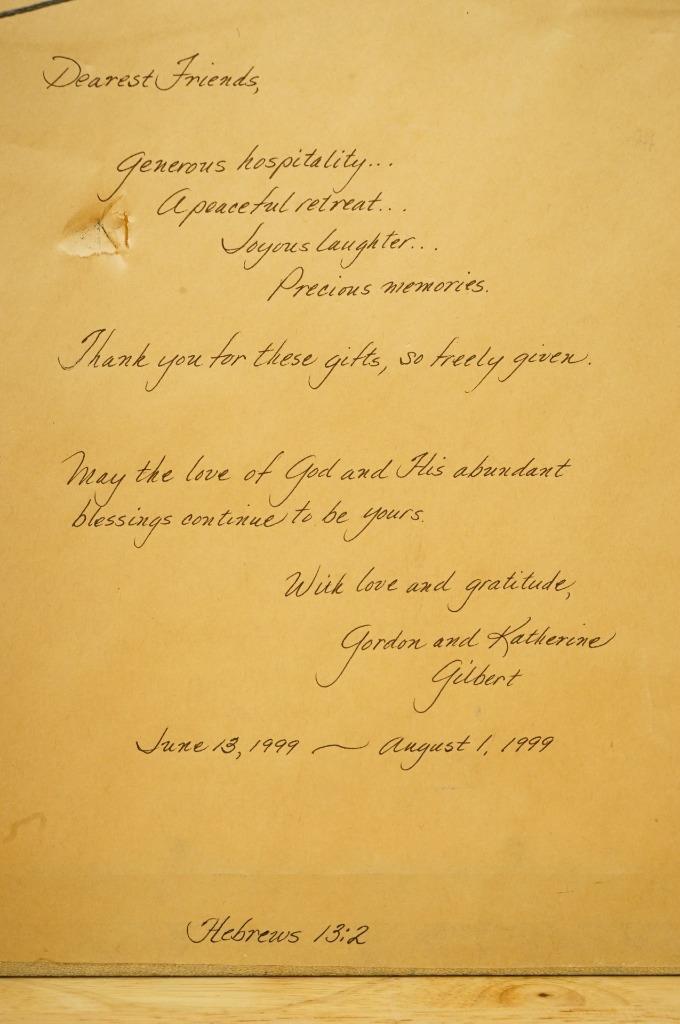 Dearest Friends,
Generous hospitality...
A peaceful retreat...
Joyous laughter...
Precious memories.
Thank you for these gifts, so freely given.
May the love of God and His abundant
blessings continue to be yours.
With love and gratitude,
Gordon and Katherine
Gilbert
June 13, 1999 — August 1, 1999
Hebrews 13:2